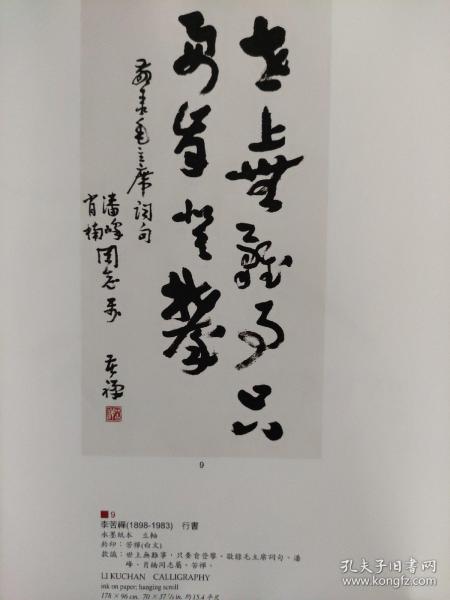 世上無難事只
要肯登攀
敬录毛主席詞句
潘峰
肖楠同志属
苦禅
9
■9
李苦禪(1898-1983) 行書
水墨紙本 立軸
鈐印：苦禪(白文)
款識：世上無難事，只要肯登攀。敬錄毛主席詞句、潘
峰、肖楠同志屬。苦禪。
LI KUCHAN CALLIGRAPHY
ink on paper; hanging scroll
178 × 96 cm. 70 × 37 ¾ in. 約15.4 平尺
孔夫子旧书网